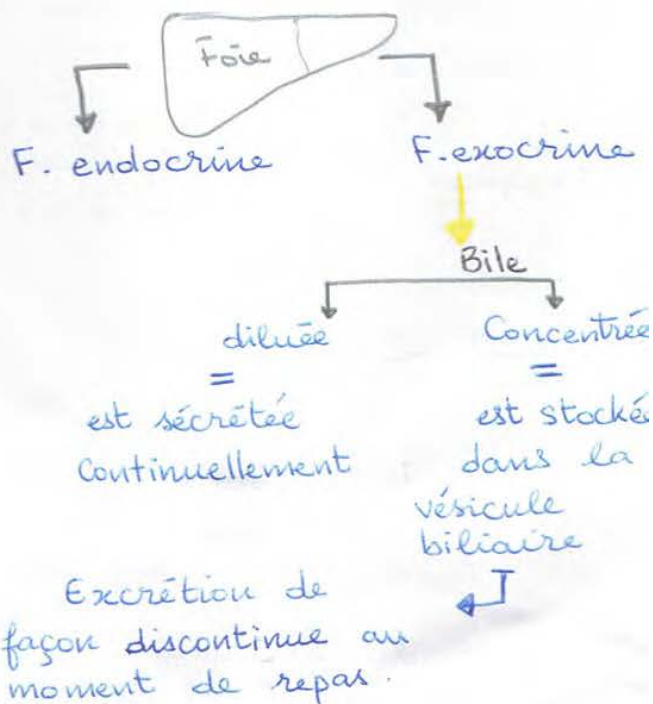 Foie
F. endocrine
F. exocrine
Bile
diluée
=
est sécrétée
Continuellement
Concentrée
=
est stockée
dans la
vésicule
biliaire
Excrétion de
façon discontinue au
moment de repas.